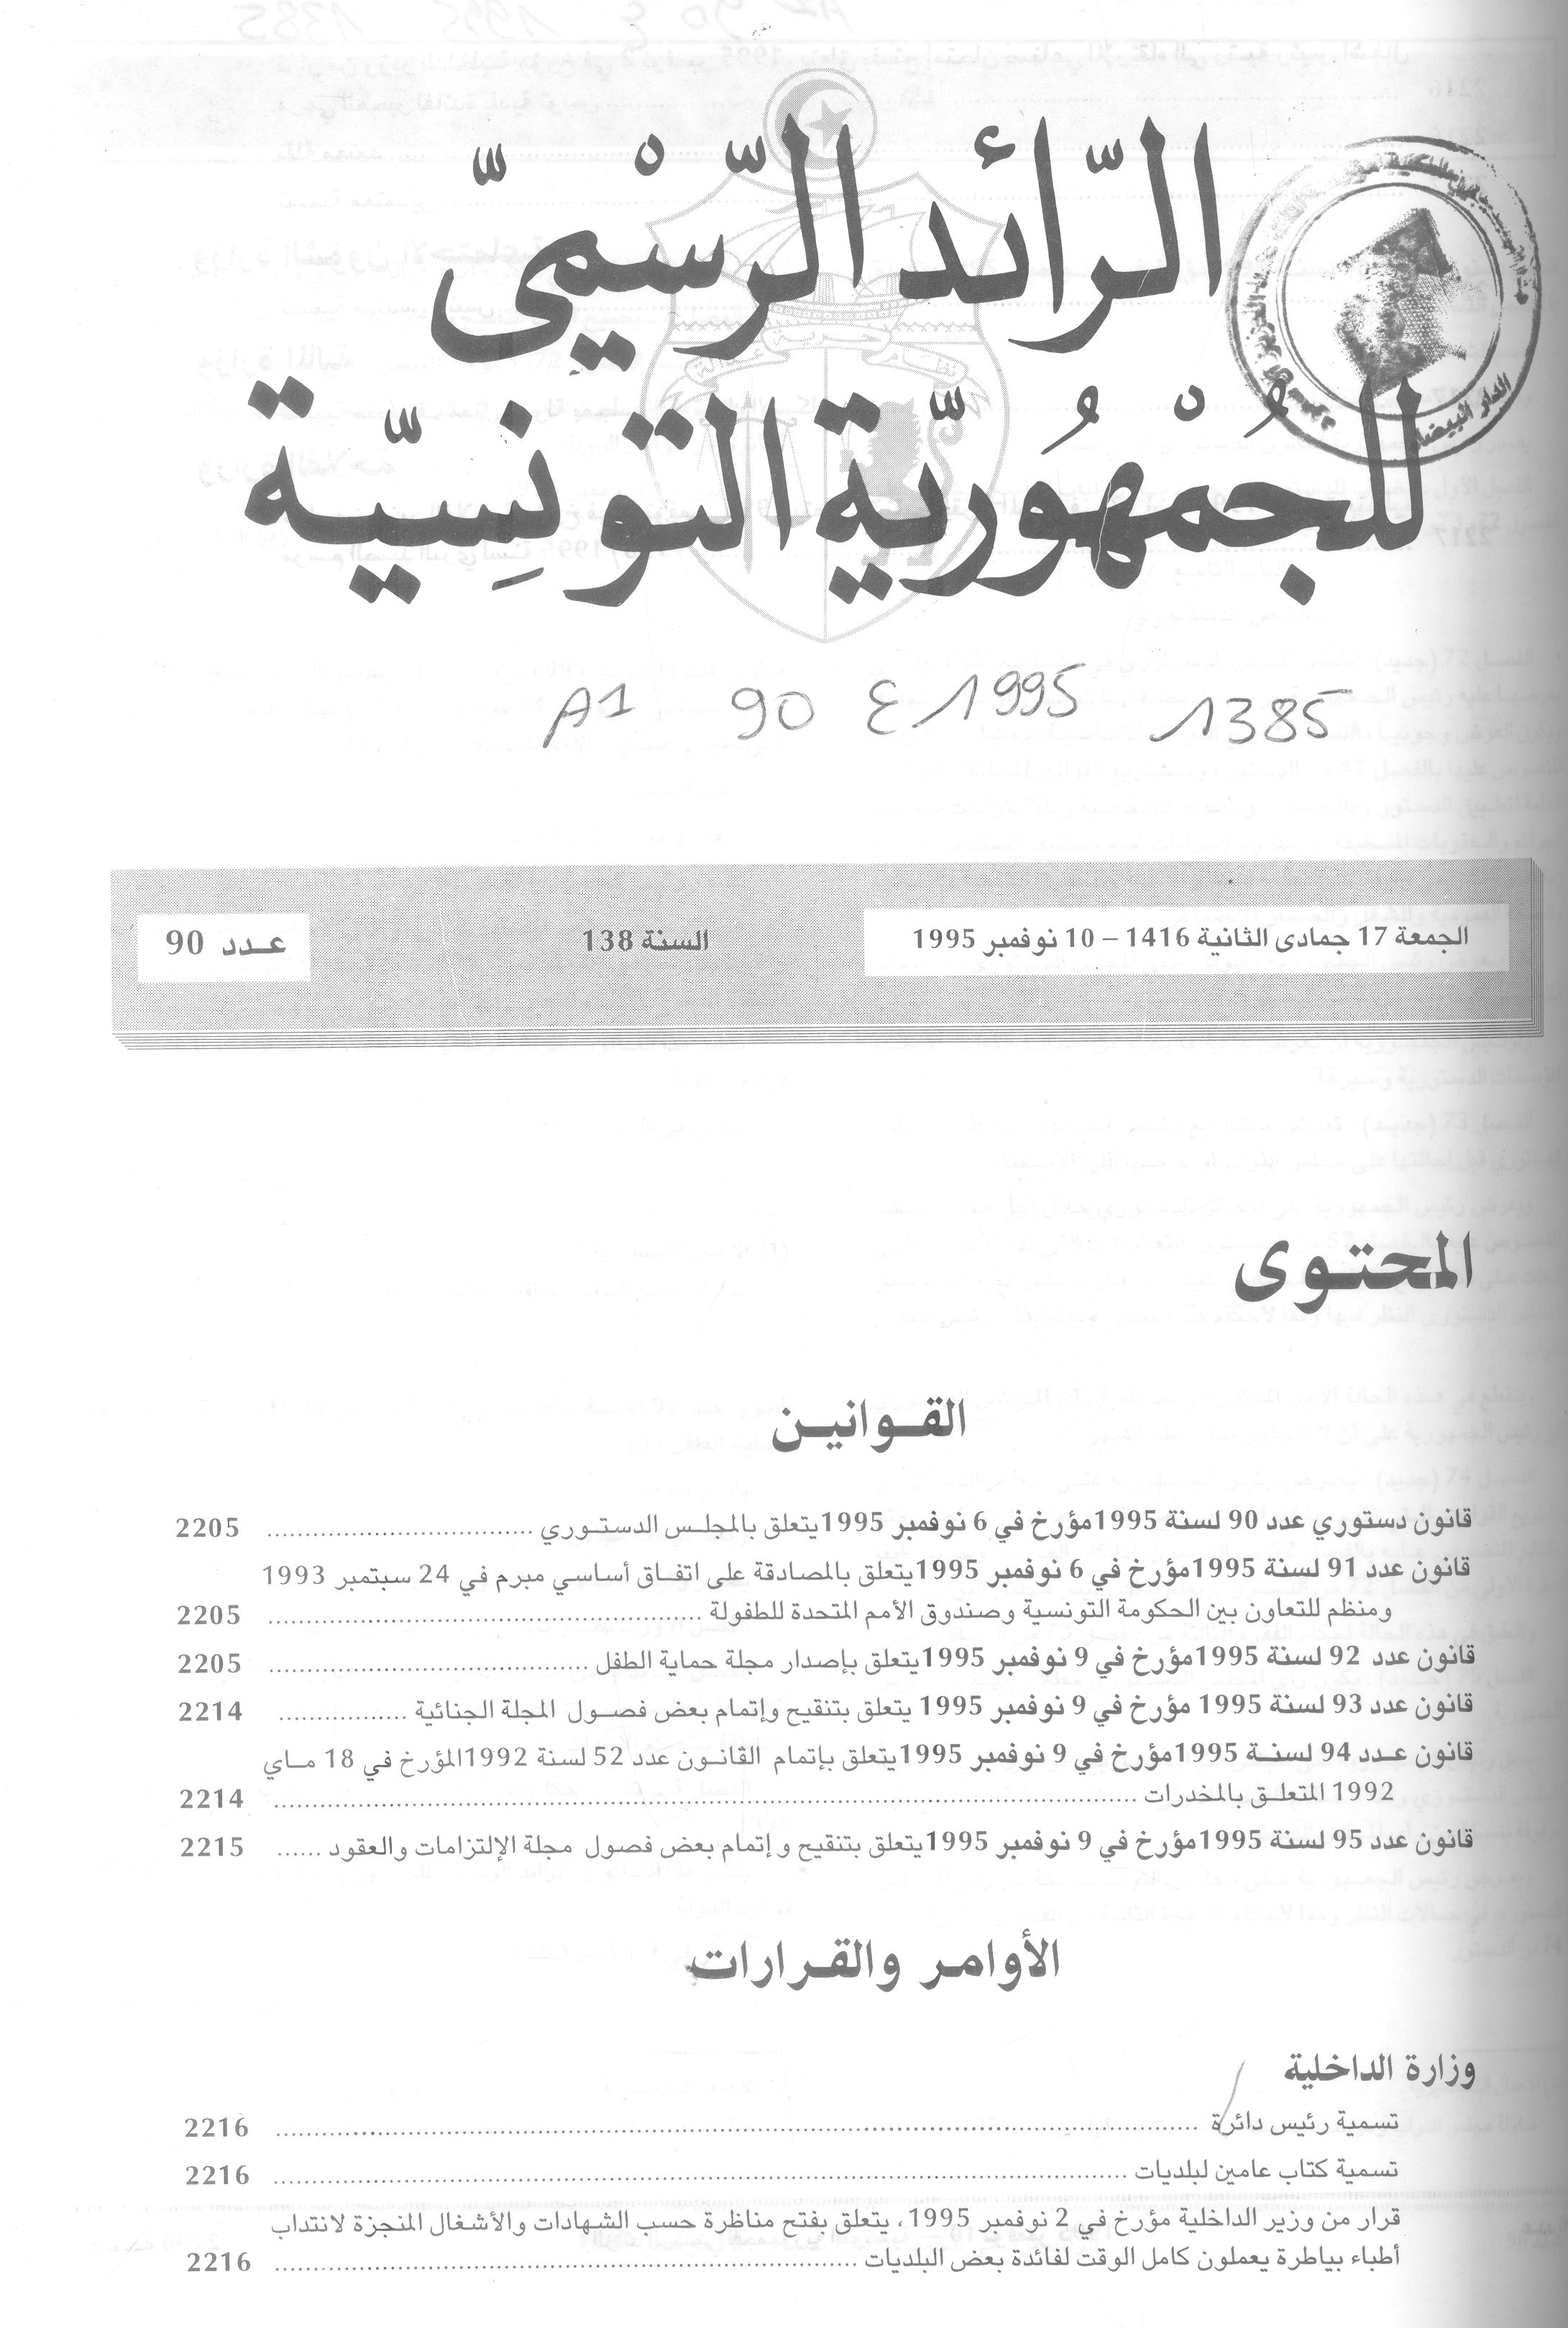 الرّائد الرّسْميّ
للجُمْهُوريّة التّونِسيّة
A1 90 ع 1995 1385
الجمعة 17 جمادى الثانية 1416 – 10 نوفمبر 1995
السنة 138
عـدد 90
المحتوى
القوانين
قانون دستوري عدد 90 لسنة 1995مؤرخ في 6 نوفمبر 1995يتعلق بالمجلس الدستوري ........ 2205
قانون عدد 91 لسنة 1995مؤرخ في 6 نوفمبر 1995يتعلق بالمصادقة على اتفاق أساسي مبرم في 24 سبتمبر 1993
ومنظم للتعاون بين الحكومة التونسية وصندوق الأمم المتحدة للطفولة ........ 2205
قانون عدد 92 لسنة 1995مؤرخ في 9 نوفمبر 1995يتعلق بإصدار مجلة حماية الطفل ........ 2205
قانون عدد 93 لسنة 1995 مؤرخ في 9 نوفمبر 1995 يتعلق بتنقيح وإتمام بعض فصول المجلة الجنائية ........ 2214
قانون عدد 94 لسنة 1995مؤرخ في 9 نوفمبر 1995يتعلق بإتمام القانون عدد 52 لسنة 1992المؤرخ في 18 ماي
1992 المتعلق بالمخدرات ........ 2214
قانون عدد 95 لسنة 1995مؤرخ في 9 نوفمبر 1995يتعلق بتنقيح و إتمام بعض فصول مجلة الإلتزامات والعقود ...... 2215
الأوامر والقرارات
وزارة الداخلية
تسمية رئيس دائرة ........ 2216
تسمية كتاب عامين لبلديات ........ 2216
قرار من وزير الداخلية مؤرخ في 2 نوفمبر 1995، يتعلق بفتح مناظرة حسب الشهادات والأشغال المنجزة لانتداب
أطباء بياطرة يعملون كامل الوقت لفائدة بعض البلديات ........ 2216
نظام حرية عدالة
الدار البيضاء